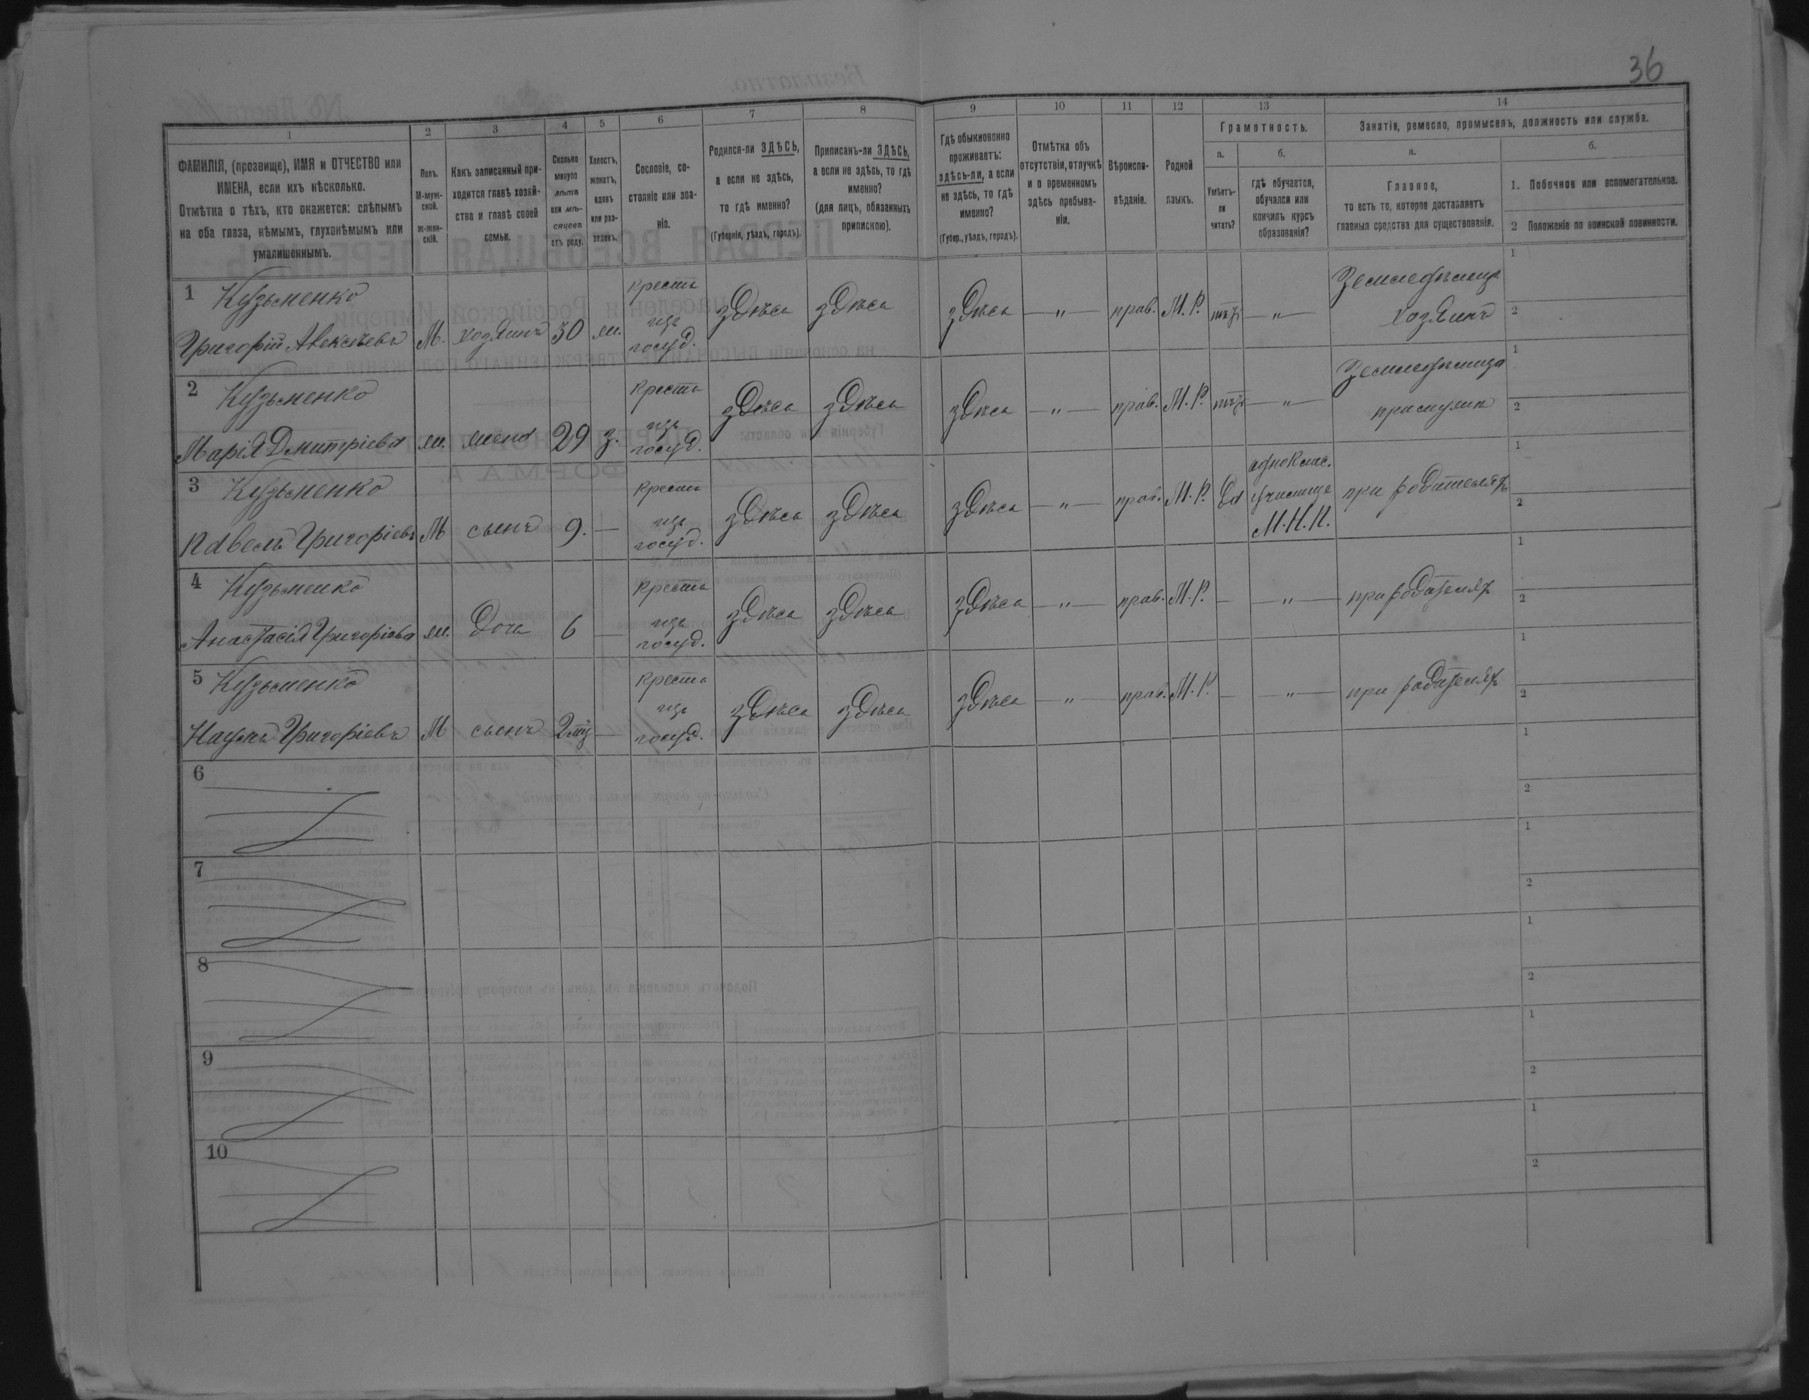 36
1
2
3
4
5
6
7
8
9
10
11
12
13
14
ФАМИЛІЯ, (прозвище), ИМЯ и ОТЧЕСТВО или
ИМЕНА, если ихъ нѣсколько.
Отмѣтка о тѣхъ, кто окажется: слѣпымъ
на оба глаза, нѣмымъ, глухонѣмымъ или
умалишеннымъ.
Полъ.
М-муж-
ской.
Ж-жен-
скій.
Какъ записанный при-
ходится главѣ хозяй-
ства и главѣ своей
семьи.
Сколько
минуло
лѣтъ
или мѣ-
сяцевъ
отъ роду.
Холостъ,
женатъ,
вдовъ
или раз-
веденъ.
Сословіе, со-
стояніе или зва-
ніе.
Родился-ли ЗДѢСЬ,
а если не здѣсь,
то гдѣ именно?
(Губернія, уѣздъ, городъ).
Приписанъ-ли ЗДѢСЬ,
а если не здѣсь, то гдѣ
именно?
(для лицъ, обязанныхъ
припискою).
Гдѣ обыкновенно
проживаетъ:
здѣсь-ли, а если
не здѣсь, то гдѣ
именно?
(Губер., уѣздъ, городъ).
Отмѣтка объ
отсутствіи, отлучкѣ
и о временномъ
здѣсь пребыва-
ніи.
Вѣроиспо-
вѣданіе.
Родной
языкъ.
Грамотность.
а.
Умѣетъ-
ли
читать?
б.
гдѣ обучается,
обучался или
кончилъ курсъ
образованія?
Занятіе, ремесло, промыселъ, должность или служба.
а.
Главное,
то есть то, которое доставляетъ
главныя средства для существованія.
б.
1. Побочное или вспомогательное.
2 Положеніе по воинской повинности.
1 Кузьменко
Григорій Алексѣевъ М. хозяинъ 30 ж. крестья изъ госуд. здѣсь здѣсь здѣсь — " — прав. М. Р. нѣтъ — " — Земледѣлица хозяинъ 1 2
2 Кузьменко
Марія Дмитріева ж. жена 29 з. крестья изъ госуд. здѣсь здѣсь здѣсь — " — прав. М. Р. нѣтъ — " — Земледѣлица 1 2
3 Кузьменко
Павелъ Григоріевъ М сынъ 9. — крестья изъ госуд. здѣсь здѣсь здѣсь — " — прав. М. Р. да однокласс. училище М. Н. П. при родителяхъ 1 2
4 Кузьменко
Анастасія Григоріева ж. дочь 6 — крестья изъ госуд. здѣсь здѣсь здѣсь — " — прав. М. Р. — — " — при родителяхъ 1 2
5 Кузьменко
Наумъ Григоріевъ М сынъ — крестья изъ госуд. здѣсь здѣсь здѣсь — " — прав. М. Р. — — " — при родителяхъ 1 2
6 1 2
7 1 2
8 1 2
9 1 2
10 1 2